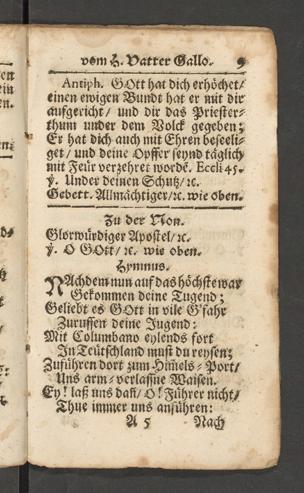 vom H. Vatter Gallo. 9
Antiph. GOtt hat dich erhöchet/
einen ewigen Bundt hat er mit dir
aufgericht/ und dir das Priester-
thum under dem Volck gegeben;
Er hat dich auch mit Ehren beseeli-
get/ und deine Opffer seynd täglich
mit Feür verzehret wordẽ. Eccli 45.
℣. Under deinen Schutz/ ꝛc.
Gebett. Allmächtiger/ ꝛc. wie oben.
Zu der Non.
Glorwürdiger Apostel/ ꝛc.
℣. O GOtt/ ꝛc. wie oben.
Hymnus.
NAchdem nun auf das höchste war
Gekommen deine Tugend;
Geliebt es GOtt in vile G'fahr
Zuruffen deine Jugend:
Mit Columbano eylends fort
In Teütschland must du reysen;
Zuführen dort zum Him̃els-Port/
Uns arm-verlaßne Waisen.
Ey! laß uns dañ/ O! Führer nicht/
Thue immer uns anführen:
A 5 Nach